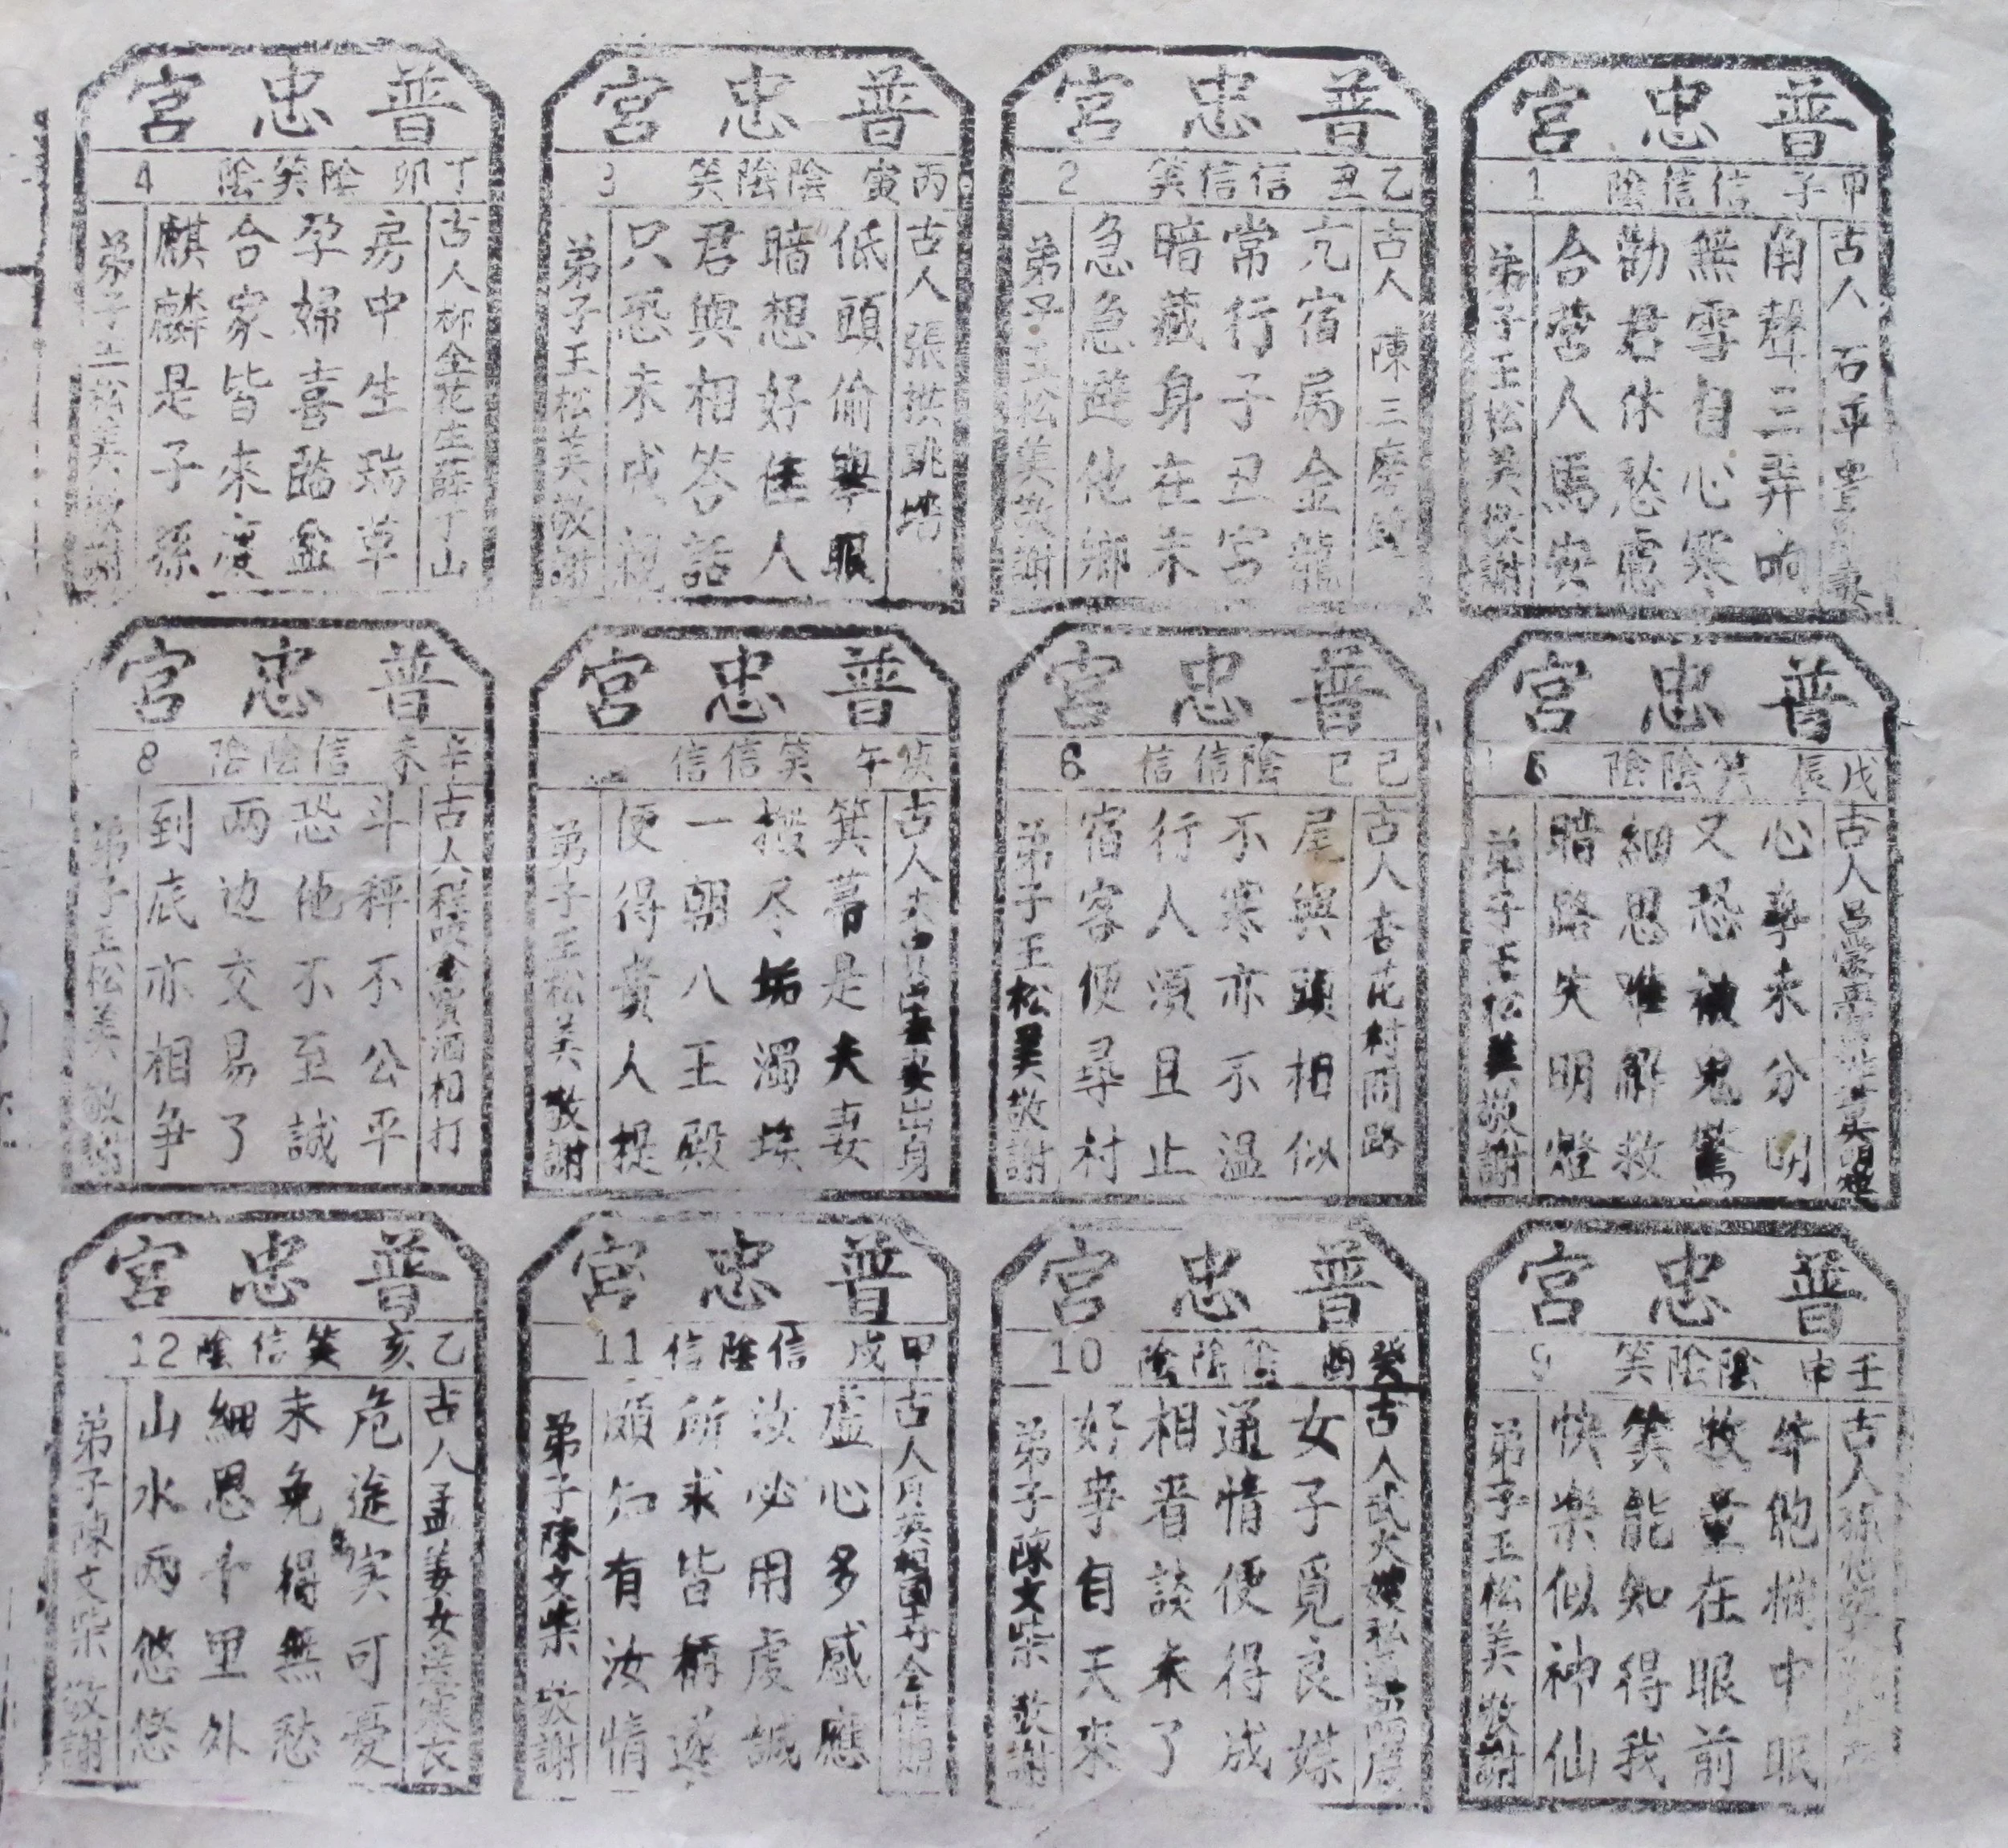 普忠宮
甲子 信信陰 1
古人 石平
角聲三弄响
無雪自心寒
勸君休愁慮
合营人馬安
弟子王松美敬謝
普忠宮
乙丑 信信笑 2
古人 陳三磨鏡
亢宿属金龍
常行子丑宮
暗藏身在未
急急避他鄉
弟子王松美敬謝
普忠宮
丙寅 陰陰笑 3
古人 張拱跳墻
低頭偷舉眼
暗想好佳人
君與相答話
只恐未成親
弟子王松美敬謝
普忠宮
丁卯 陰笑陰 4
古人柳金花生薛丁山
房中生瑞草
孕婦喜臨盆
合家皆來慶
麒麟是子孫
弟子王松美敬謝
普忠宮
戊辰 笑陰陰
古人呂蒙
心事未分明
又恐被鬼驚
細思唯解救
暗路失明燈
弟子王松美敬謝
普忠宮
己巳 陰信信 6
古人杏花村問路
尾與頭相似
不寒亦不溫
行人須且止
宿客便尋村
弟子王松美敬謝
普忠宮
庚午 笑信信
古人 出身
箕箒是夫妻
撥尽垢濁埃
一朝八王殿
便得貴人提
弟子王松美敬謝
普忠宮
辛未 信陰陰 8
古人程咬金賣酒相打
斗秤不公平
恐他不至誠
两边交易了
到底亦相争
弟子王松美敬謝
普忠宮
壬申 陰陰笑 9
古人孫
牛飽欄中眠
牧童在眼前
笑能知得我
快樂似神仙
弟子王松美敬謝
普忠宮
癸酉 陰陰陰 10
古人武大嫂私通西門慶
女子覓良媒
通情便得成
相看談未了
好事自天來
弟子陳文柴敬謝
普忠宮
甲戌 信陰信 11
古人月英相國寺全佳期
虛心多感應
汝必用虔誠
所求皆稱遂
頗知有汝情
弟子陳文柴敬謝
普忠宮
乙亥 笑信陰 12
古人孟姜女送寒衣
危途実可憂
未免得無愁
細思千里外
山水两悠悠
弟子陳文柴敬謝